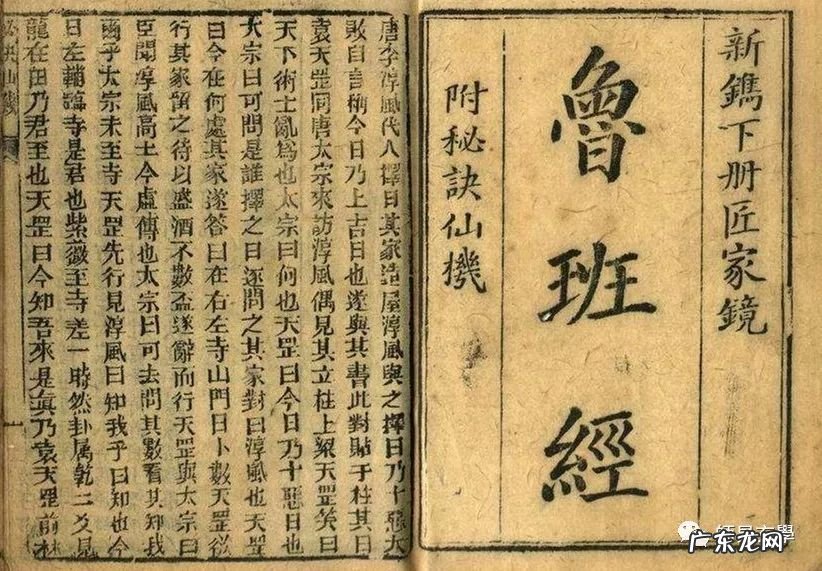 新鐫下册匠家鏡
魯班經
附秘訣仙機
唐李淳風代人擇日其家造屋淳風與之擇日乃十惡大
敗自言稱今日乃上吉日也遂與其書此對貼于柱其日
袁天罡同唐太宗來訪淳風偶見其立柱上梁天罡笑曰
天下術士亂為也太宗曰何也天罡曰今日乃十惡日也
太宗曰可問是誰擇之日逐問之其家對曰淳風也天罡
曰今在何處其家遂答曰在右左寺山門日卜數天罡欲
行其家留之待以盛酒不數盃遂辭而行天罡與太宗曰
臣聞淳風高士今虛傳也太宗曰可去問其數看其知我
爾乎太宗未至寺天罡先行見淳風曰知我乎曰知也今
日左輔臨寺是君也紫薇至寺差一時然卦属乾二爻見
龍在田乃君至也天罡曰今知吾來是眞乃袁天罡前
一
广东龙网